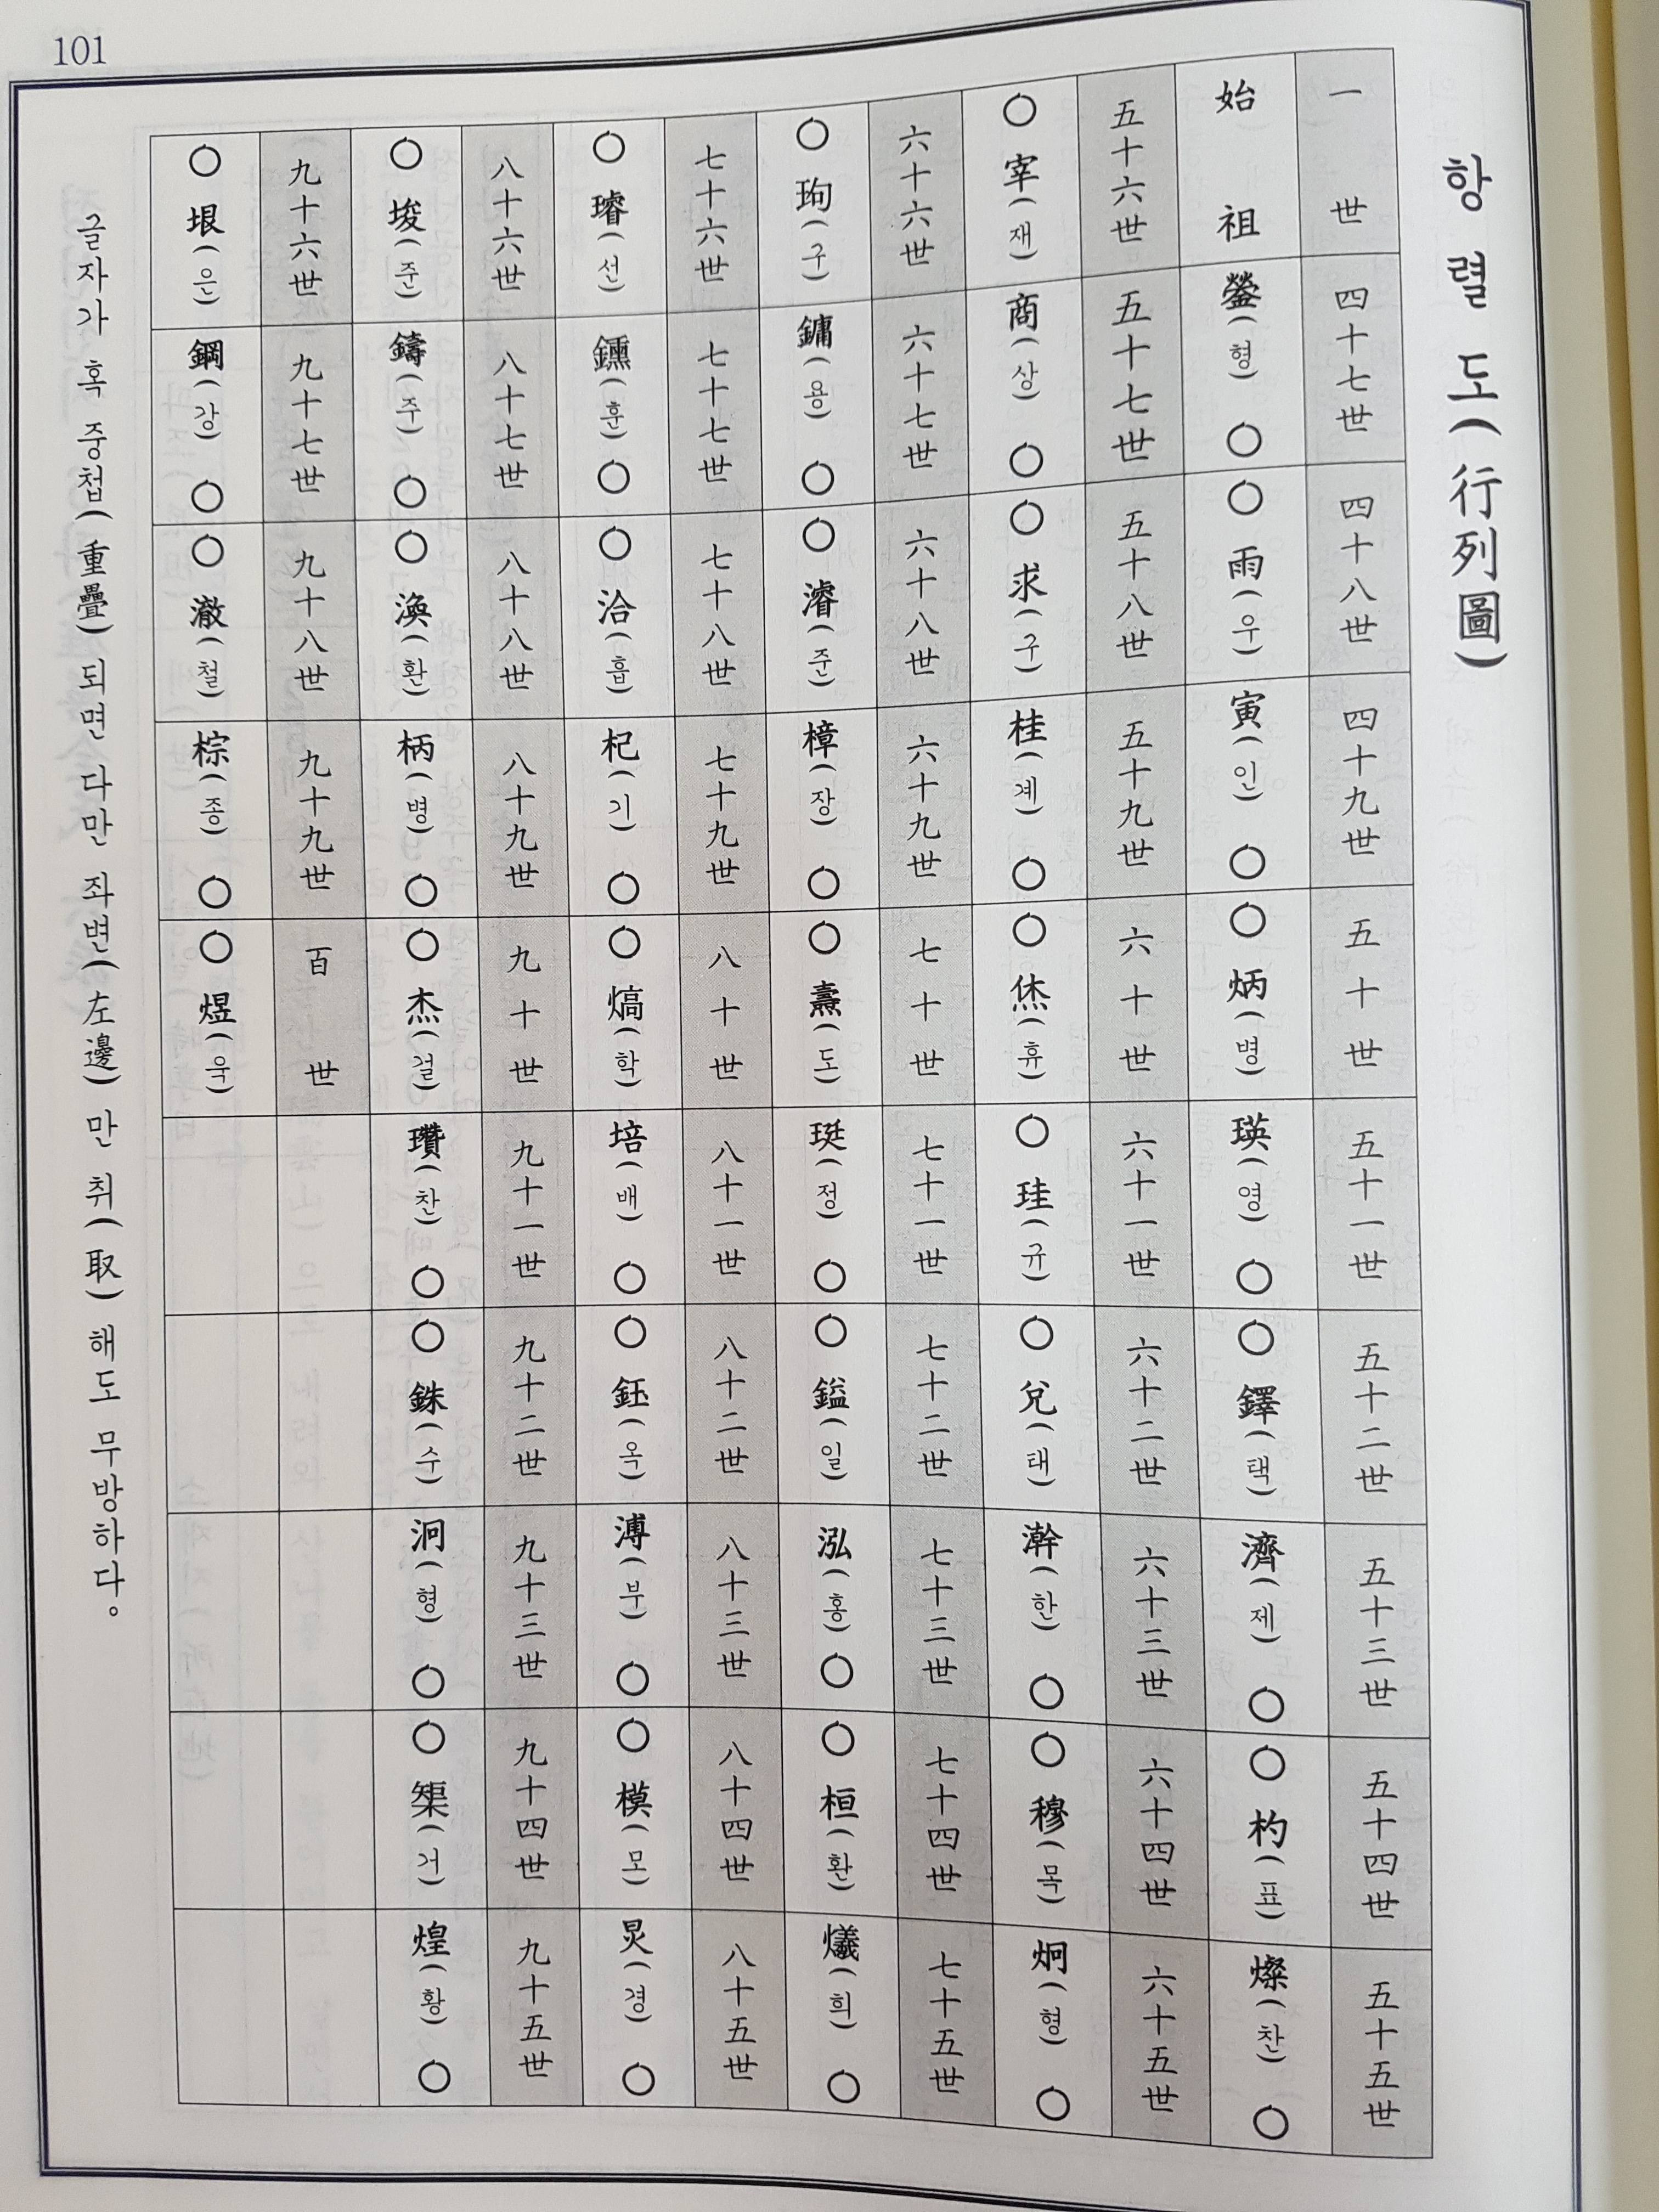 101
항렬도(行列圖)
一世
始祖
四十七世
鎣(형) ○
四十八世
○ 雨(우)
四十九世
寅(인) ○
五十世
○ 炳(병)
五十一世
瑛(영) ○
五十二世
○ 鐸(택)
五十三世
濟(제) ○
五十四世
○ 杓(표)
五十五世
燦(찬) ○
五十六世
○ 宰(재)
五十七世
商(상) ○
五十八世
○ 求(구)
五十九世
桂(계) ○
六十世
○ 烋(휴)
六十一世
○ 珪(규)
六十二世
○ 兌(태)
六十三世
澣(한) ○
六十四世
○ 穆(목)
六十五世
炯(형) ○
六十六世
○ 玽(구)
六十七世
鏞(용) ○
六十八世
○ 濬(준)
六十九世
樟(장) ○
七十世
○ 燾(도)
七十一世
珽(정) ○
七十二世
○ 鎰(일)
七十三世
泓(홍) ○
七十四世
○ 桓(환)
七十五世
爔(희) ○
七十六世
○ 璿(선)
七十七世
鑂(훈) ○
七十八世
○ 洽(흡)
七十九世
杞(기) ○
八十世
○ 熇(학)
八十一世
培(배) ○
八十二世
○ 鈺(옥)
八十三世
溥(부) ○
八十四世
○ 模(모)
八十五世
炅(경) ○
八十六世
○ 埈(준)
八十七世
鑄(주) ○
八十八世
○ 渙(환)
八十九世
柄(병) ○
九十世
○ 杰(걸)
九十一世
瓚(찬) ○
九十二世
○ 銖(수)
九十三世
泂(형) ○
九十四世
○ 榘(거)
九十五世
煌(황) ○
九十六世
○ 垠(은)
九十七世
鋼(강) ○
九十八世
○ 澈(철)
九十九世
棕(종) ○
百世
○ 煜(욱)
글자가 혹 중첩(重疊)되면 다만 좌변(左邊)만 취(取)해도 무방하다。